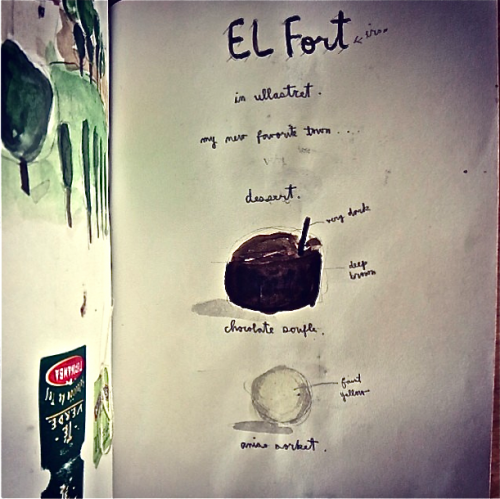 EL Fort
in ullastret.
my new favorite town....
dessert.
very dark
deep
brown
chocolate soufle.
faint
yellow
anise sorbet.
HORNIMANS
TE
VERDE